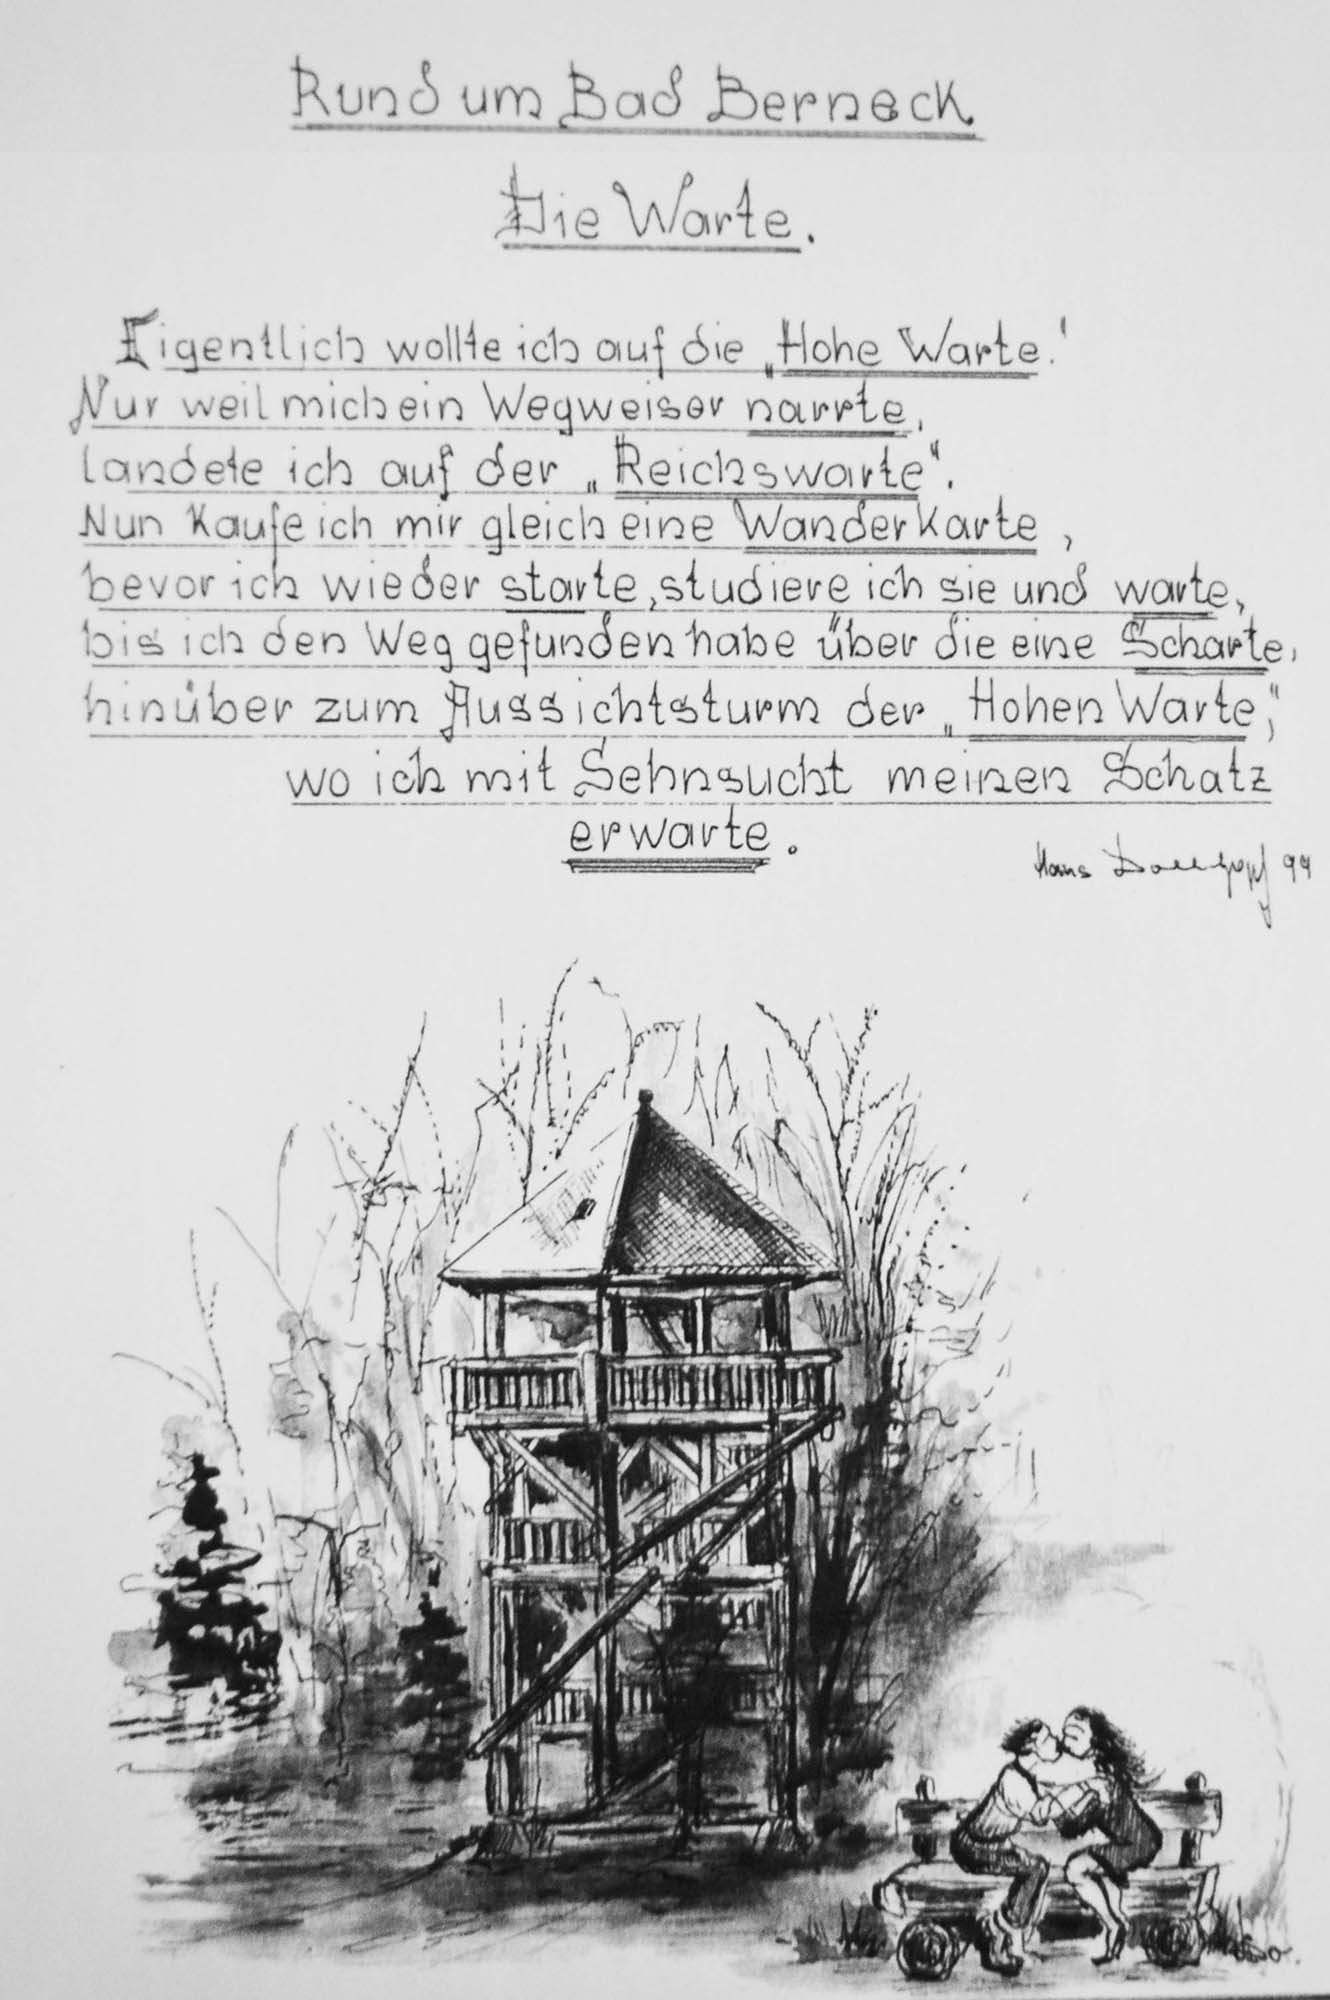 Rund um Bad Berneck.
Die Warte.
Eigentlich wollte ich auf die „Hohe Warte.'
Nur weil mich ein Wegweiser narrte,
landete ich auf der „Reichswarte".
Nun Kaufe ich mir gleich eine WanderKarte,
bevor ich wieder starte, studiere ich sie und warte,
bis ich den Weg gefunden habe über die eine Scharte,
hinüber zum Aussichtsturm der „Hohen Warte",
wo ich mit Sehnsucht meinen Schatz
erwarte.
Hans 99